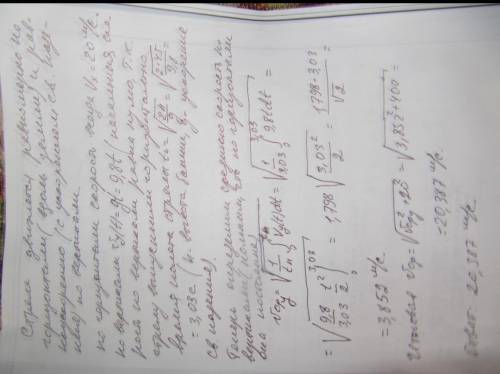 Стрела движется равномерно по
горизонтали (вдоль земли) и рав-
ноускоренно (с ускорением св. паде-
ния) по вертикали.
по горизонтали скорость всегда V₀=20 м/с.
по вертикали V_y(t)=gt=9,8t (начальная ско-
рость по вертикали равна нулю, т.к.
стрелу выпустили горизонтально.
время полета стрелы t=√(2H/g)=√(2·45/9,8)
=3,03с (H- высота башни, g- ускорение
св падения).
Теперь определим среднюю скорость по
вертикали (помним, что по горизонтали
она постоянна)
=√(9,8/3,03 · t²/2 |₀^3,03)=1,798√(3,03²/2)=1,798·3,03/√2=
=3,852 м/с
Vср=√(Vсрy²+20²)=√(3,852²+400)=
=20,387 м/с.
Ответ 20,387 м/с.